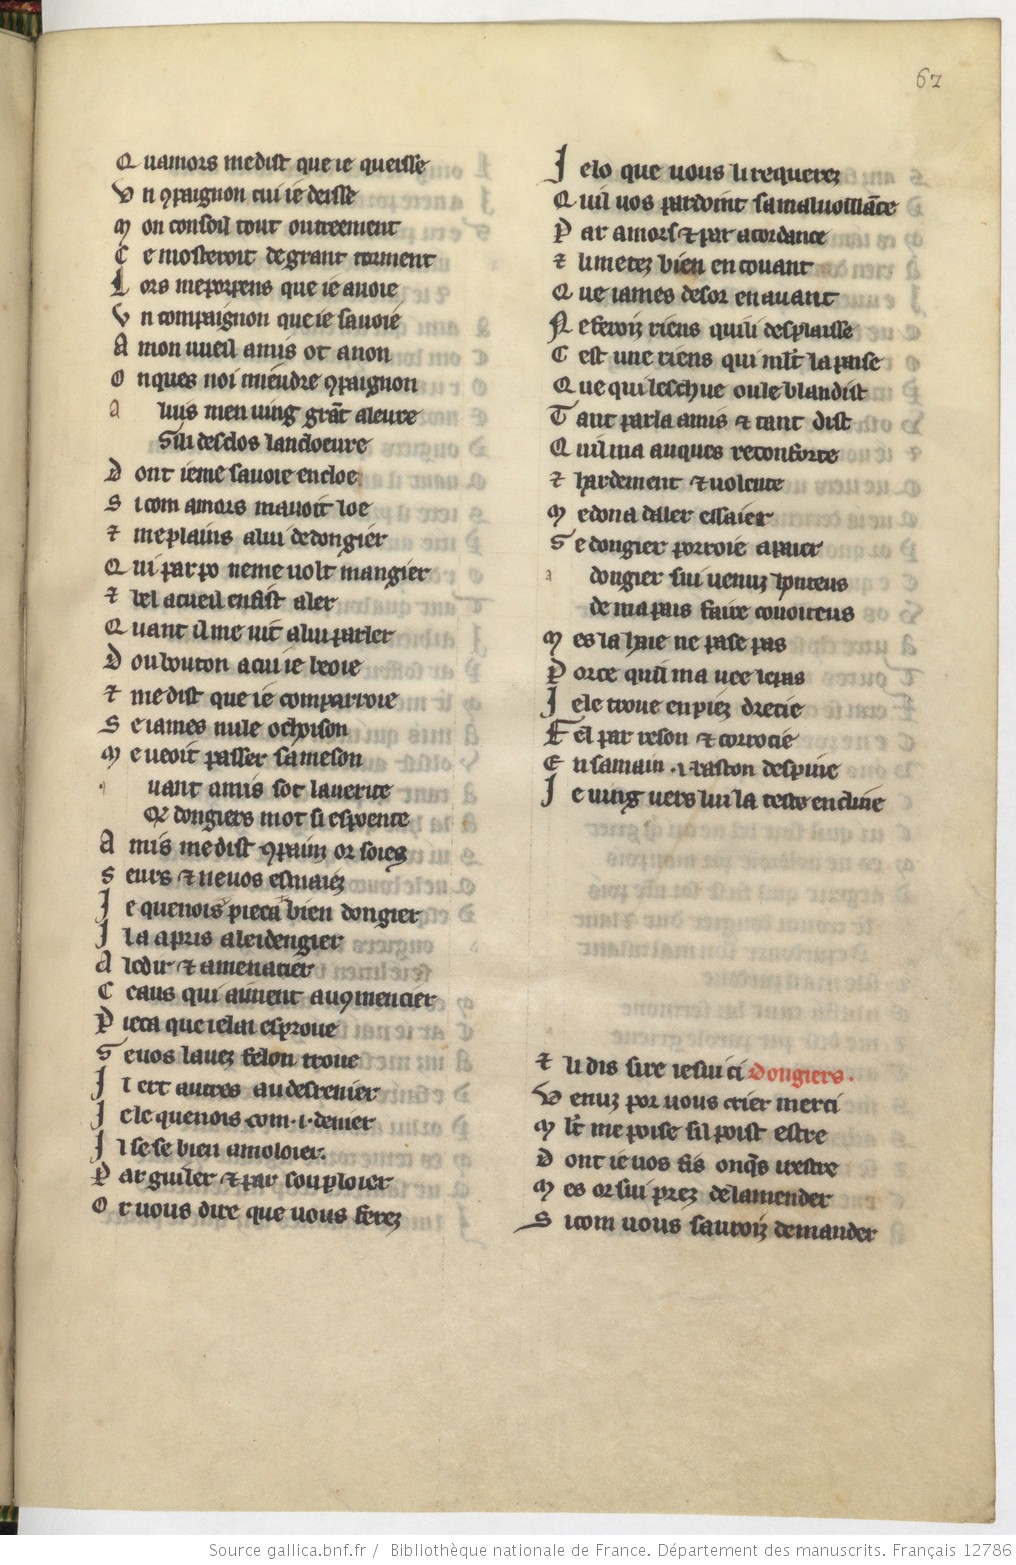 62
Q uamors me dist que ie queisse
V n ꝯpaignon cui ie deisse
M on consoil tout outreement
C e mosteroit de grant torment
L ors me porpens que ie auoie
V n compaignon que ie sauoie
A mon uueil amis ot anon
O nques noi miendre ꝯpaignon
a luis men uing grãt aleure
Si li desclos lancloeure
D ont ie me sauoie encloe
S i com amors mauoit loe
⁊ me plains a lui de dongier
Q ui par po ne me uolt mangier
⁊ bel acueil en fist aler
Q uant il me uit a lui parler
D ou bouton a cui ie beoie
⁊ me dist que ie comparroie
S e iames nule ochoison
M e ueoit passer sa meson
q uant amis sot la uerite
Q̃ dongiers mot si espoente
A mis me dist ꝯpainz or soiez
S eurs ⁊ ne uos esmaiez
J e quenois pieca bien dongier
J l a apris a leidengier
A ledir ⁊ a menacier
C eaus qui aiment au ꝯmencier
P ieca que ie lai esproue
S e uos lauez felon troue
J l ert autres au desrenier
J e le quenois com .i. denier
J l se se bien amoloier.
P ar guiler ⁊ par souploier
O r uous dire que uous ferez
J e lo que uous li requerez
Q uil uos pardoint sa maluoillãce
P ar amors ⁊ par acordance
⁊ li metez bien en couant
Q ue iames desor en auant
N e feroiz riens qui li desplaisse
C est une riens qui mlt̃ la paise
Q ue qui le schue ou le blandist
T ant parla amis ⁊ tant dist
Q uil ma auques reconforte
⁊ hardement ⁊ uolente
M e dona daler essaier
S e dongier porroie apaier
a dongier sui uenuz honteus
de ma pais faire couoiteus
M es la haie ne pase pas
P orce quil ma uee le pas
J e le troue en piez drecie
F el par reson ⁊ corrocie
E n sa main .i. baston despine
J e uing uers lui la teste encline
⁊ li dis sire ie sui ci Dongiers.
V enuz por uous crier merci
M lt̃ me poise sil poist estre
D ont ie uos fis onq̃s irestre
M es or sui prez de lamender
S i com uous sauroiz demander
Source gallica.bnf.fr / Bibliothèque nationale de France. Département des manuscrits. Français 12786